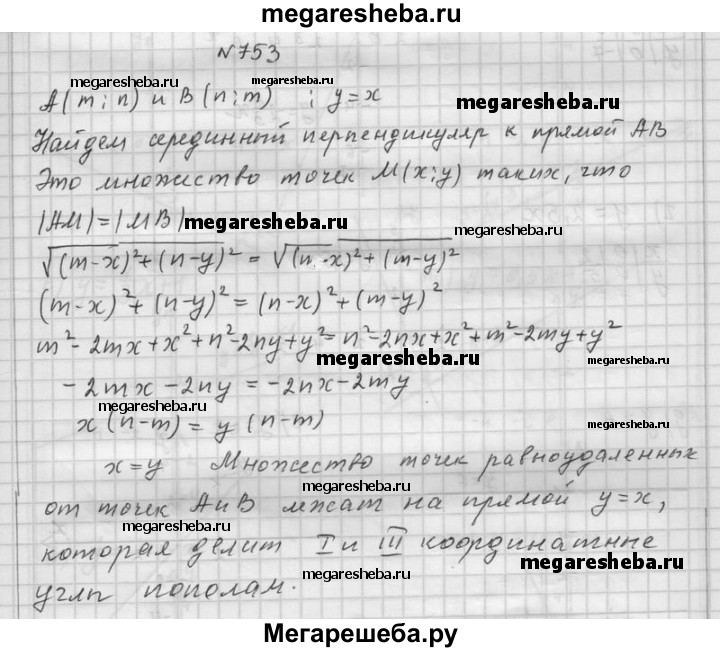 megaresheba.ru
№753
megaresheba.ru megaresheba.ru
A(m;n) и B(n;m) ; y=x
megaresheba.ru
Найдем серединный перпендикуляр к прямой AB
Это множество точек M(x;y) таких, что
|AM|=|MB| megaresheba.ru
√(m-x)²+(n-y)² = √(n-x)²+(m-y)²
(m-x)²+(n-y)²=(n-x)²+(m-y)²
m²-2mx+x²+n²-2ny+y²=n²-2nx+x²+m²-2my+y²
megaresheba.ru megaresheba.ru
-2mx-2ny=-2nx-2my
megaresheba.ru
x(n-m)=y(n-m) megaresheba.ru
x=y Множество точек равноудаленных
megaresheba.ru
от точек A и B лежат на прямой y=x,
megaresheba.ru
которая делит I и III координатные
megaresheba.ru
углы пополам.
Мегарешеба.ру